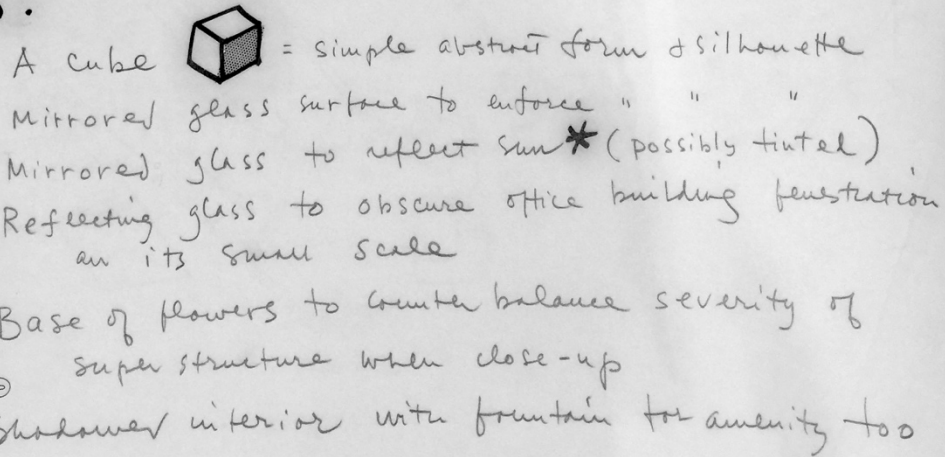 A cube = simple abstract form & silhouette
Mirrored glass surface to enforce " " "
Mirrored glass to reflect sun* (possibly tinted)
Reflecting glass to obscure office building fenestration
an its small scale
Base of flowers to counter balance severity of
super structure when close-up
Shadowed interior with fountain for amenity too